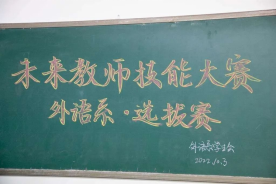 未来教师技能大赛
外语系·选拔赛
外语系学生会
2022.10.3